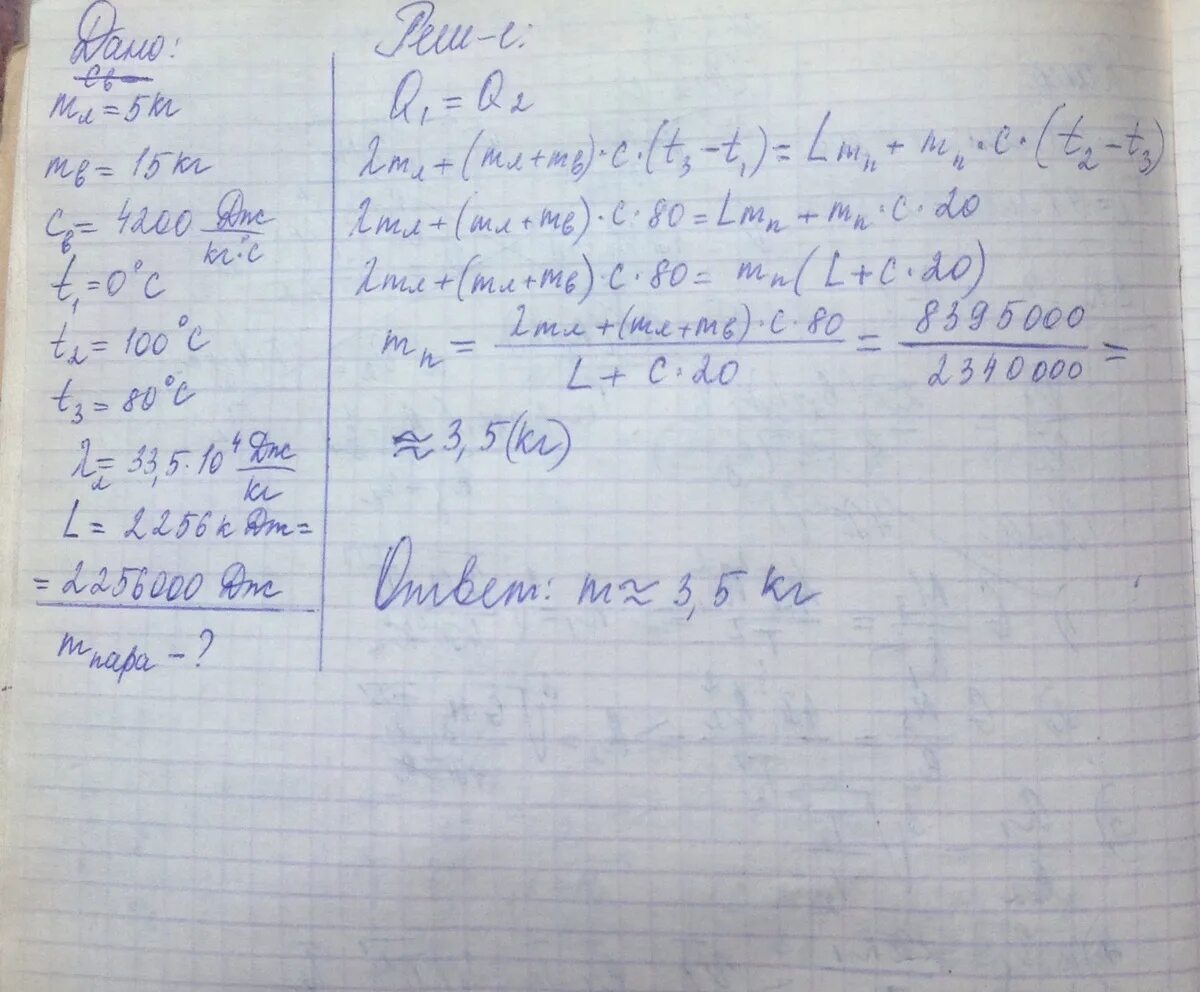 Дано:
св
mл = 5 кг
mв = 15 кг
cв = 4200 Дж/кг·°С
t₁ = 0°С
t₂ = 100°С
t₃ = 80°С
λл = 33,5·10⁴ Дж/кг
L = 2256 к Дж =
= 2256000 Дж
mпара – ?
Реш-е:
Q₁ = Q₂
λmл + (mл + mв)·с·(t₃ – t₁) = Lmп + mп·с·(t₂ – t₃)
λmл + (mл + mв)·с·80 = Lmп + mп·с·20
λmл + (mл + mв)·с·80 = mп(L + с·20)
mп = λmл + (mл + mв)·с·80 / L + с·20 = 8395000 / 2340000 =
≈ 3,5 (кг)
Ответ: m ≈ 3,5 кг